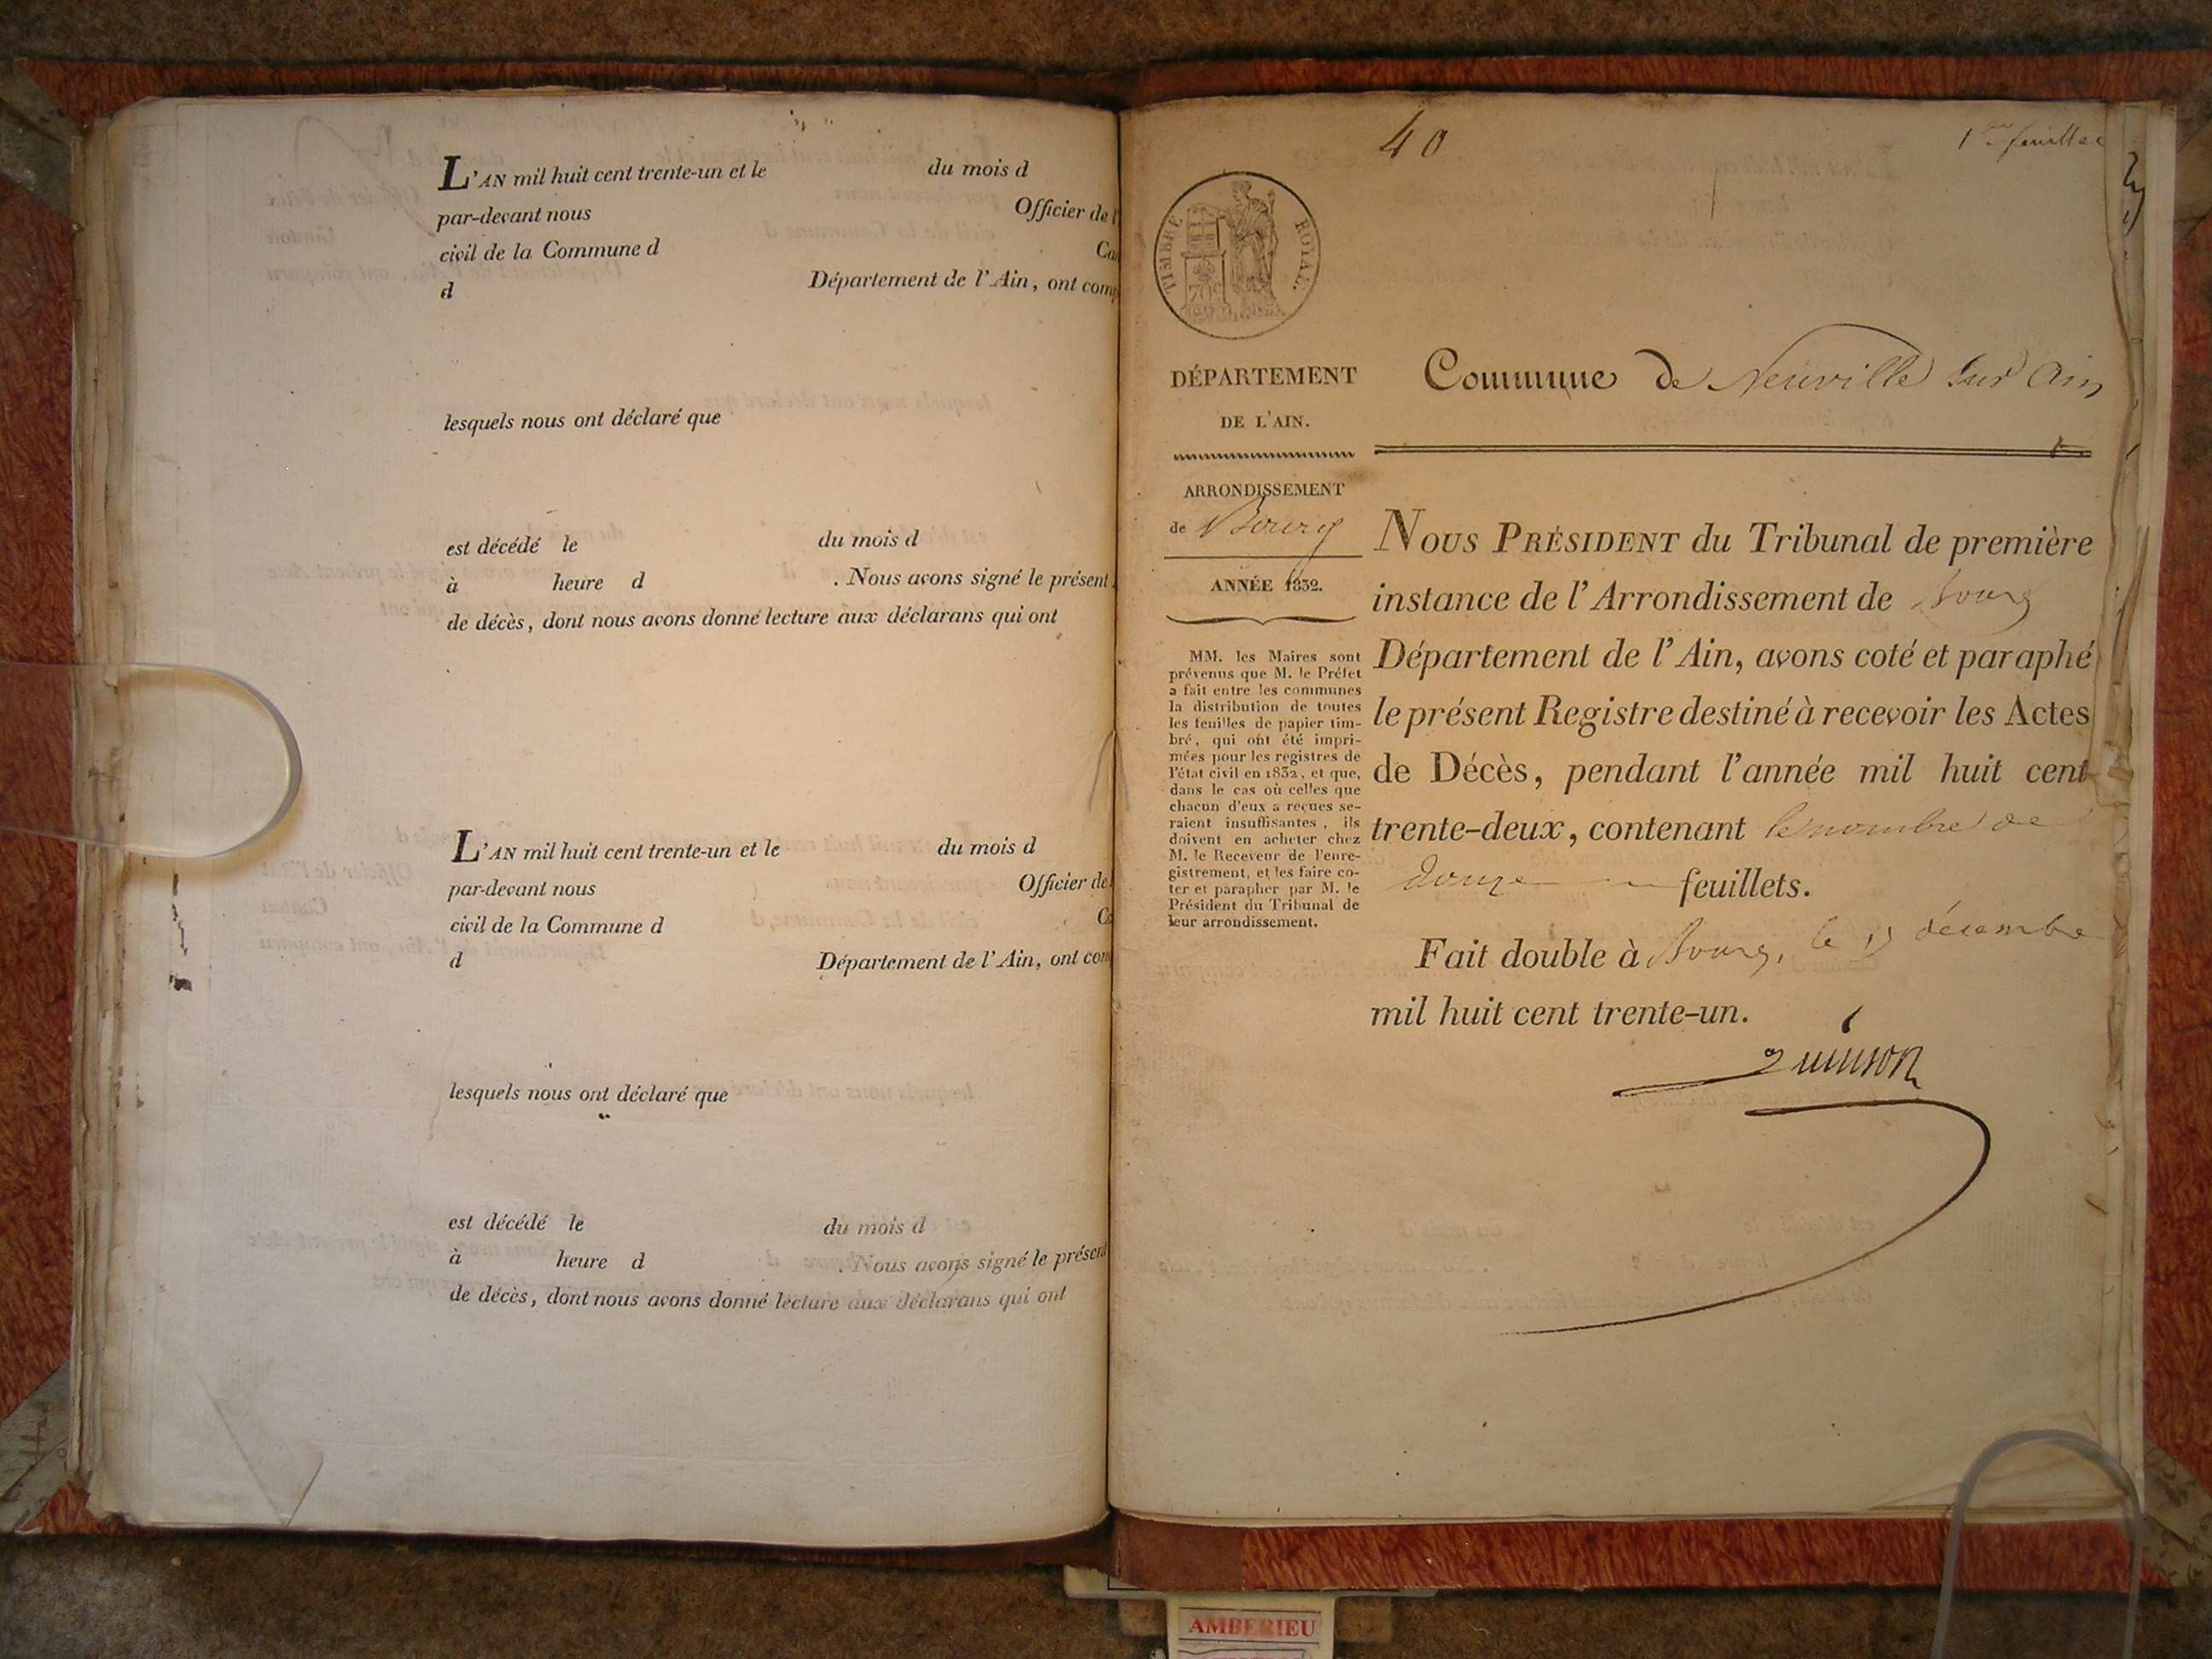 L'AN mil huit cent trente-un et le du mois d
par-devant nous Officier de l
civil de la Commune d Ca
d Département de l'Ain, ont comp
lesquels nous ont déclaré que
est décédé le du mois d
à heure d . Nous avons signé le présent
de décès, dont nous avons donné lecture aux déclarans qui ont
L'AN mil huit cent trente-un et le du mois d
par-devant nous Officier de
civil de la Commune d C
d Département de l'Ain, ont com
lesquels nous ont déclaré que
est décédé le du mois d
à heure d . Nous avons signé le présent
de décès, dont nous avons donné lecture aux déclarans qui ont
40
feuillet
TIMBRE ROYAL.
DÉPARTEMENT
DE L'AIN.
ARRONDISSEMENT
de Bourg
ANNÉE 1832.
MM. les Maires sont
prévenus que M. le Préfet
a fait entre les communes
la distribution de toutes
les feuilles de papier tim-
bré, qui ont été impri-
mées pour les registres de
l'état civil en 1832, et que,
dans le cas où celles que
chacun d'eux a reçues se-
raient insuffisantes, ils
doivent en acheter chez
M. le Receveur de l'enre-
gistrement, et les faire co-
ter et parapher par M. le
Président du Tribunal de
leur arrondissement.
Commune de Neuville sur Ain
NOUS PRÉSIDENT du Tribunal de première
instance de l'Arrondissement de Bourg
Département de l'Ain, avons coté et paraphé
le présent Registre destiné à recevoir les Actes
de Décès, pendant l'année mil huit cent
trente-deux, contenant le nombre de
douze feuillets.
Fait double à Bourg, le décembre
mil huit cent trente-un.
Quinson
AMBERIEU